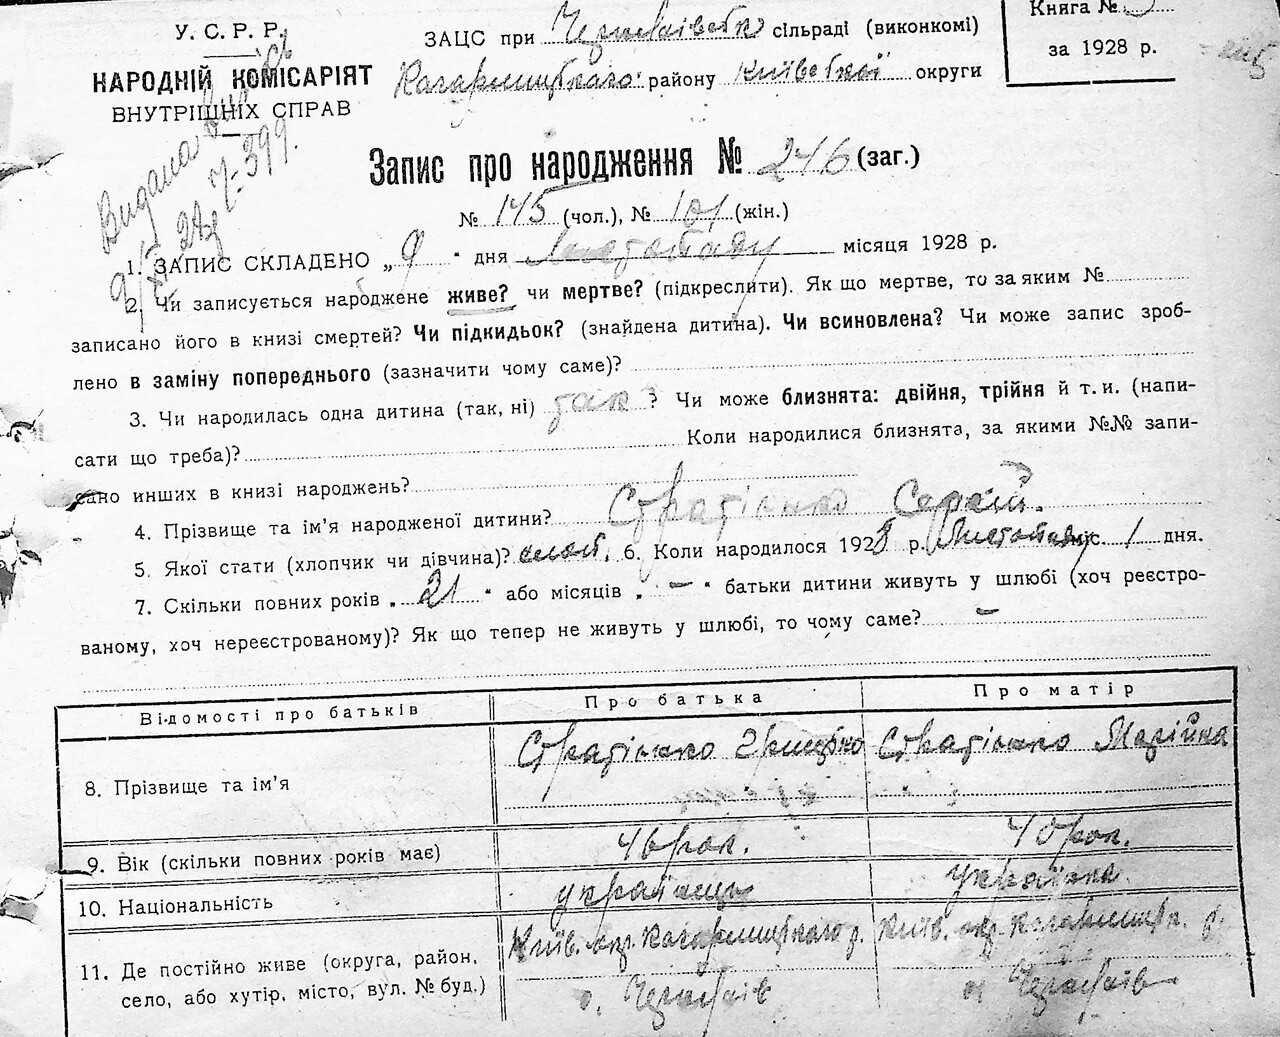 У. С. Р. Р.
НАРОДНІЙ КОМІСАРІЯТ
ВНУТРІШНІХ СПРАВ
ЗАЦС при сільраді (виконкомі)
Кагарлицького району Київської округи
Книга №
за 1928 р.
Видана
Запис про народження № 246 (заг.)
№ 145 (чол.), № 101 (жін.)
1. ЗАПИС СКЛАДЕНО „9" дня Листопаду місяця 1928 р.
2. Чи записується народжене живе? чи мертве? (підкреслити). Як що мертве, то за яким №
записано його в книзі смертей? Чи підкидьок? (знайдена дитина). Чи всиновлена? Чи може запис зроб-
лено в заміну попереднього (зазначити чому саме)?
3. Чи народилась одна дитина (так, ні) так? Чи може близнята: двійня, трійня й т. и. (напи-
сати що треба)? Коли народилися близнята, за якими №№ запи-
сано инших в книзі народжень?
4. Прізвище та ім'я народженої дитини? Стратієнко Сергій.
5. Якої стати (хлопчик чи дівчина)? 6. Коли народилося 1928 р. Листопаду міс. 1 дня.
7. Скільки повних років „21" або місяців „—" батьки дитини живуть у шлюбі (хоч реєстро-
ваному, хоч нереєстрованому)? Як що тепер не живуть у шлюбі, то чому саме? —
Відомості про батьків Про батька Про матір
8. Прізвище та ім'я Стратієнко Грицько Стратієнко Марійка
9. Вік (скільки повних років має) 46 рок. 40 рок.
10. Національність українець українка
11. Де постійно живе (округа, район, Київ. окр. Кагарлицького р. Київ. окр. Кагарлицьк. р.
село, або хутір, місто, вул. № буд.) с. с.